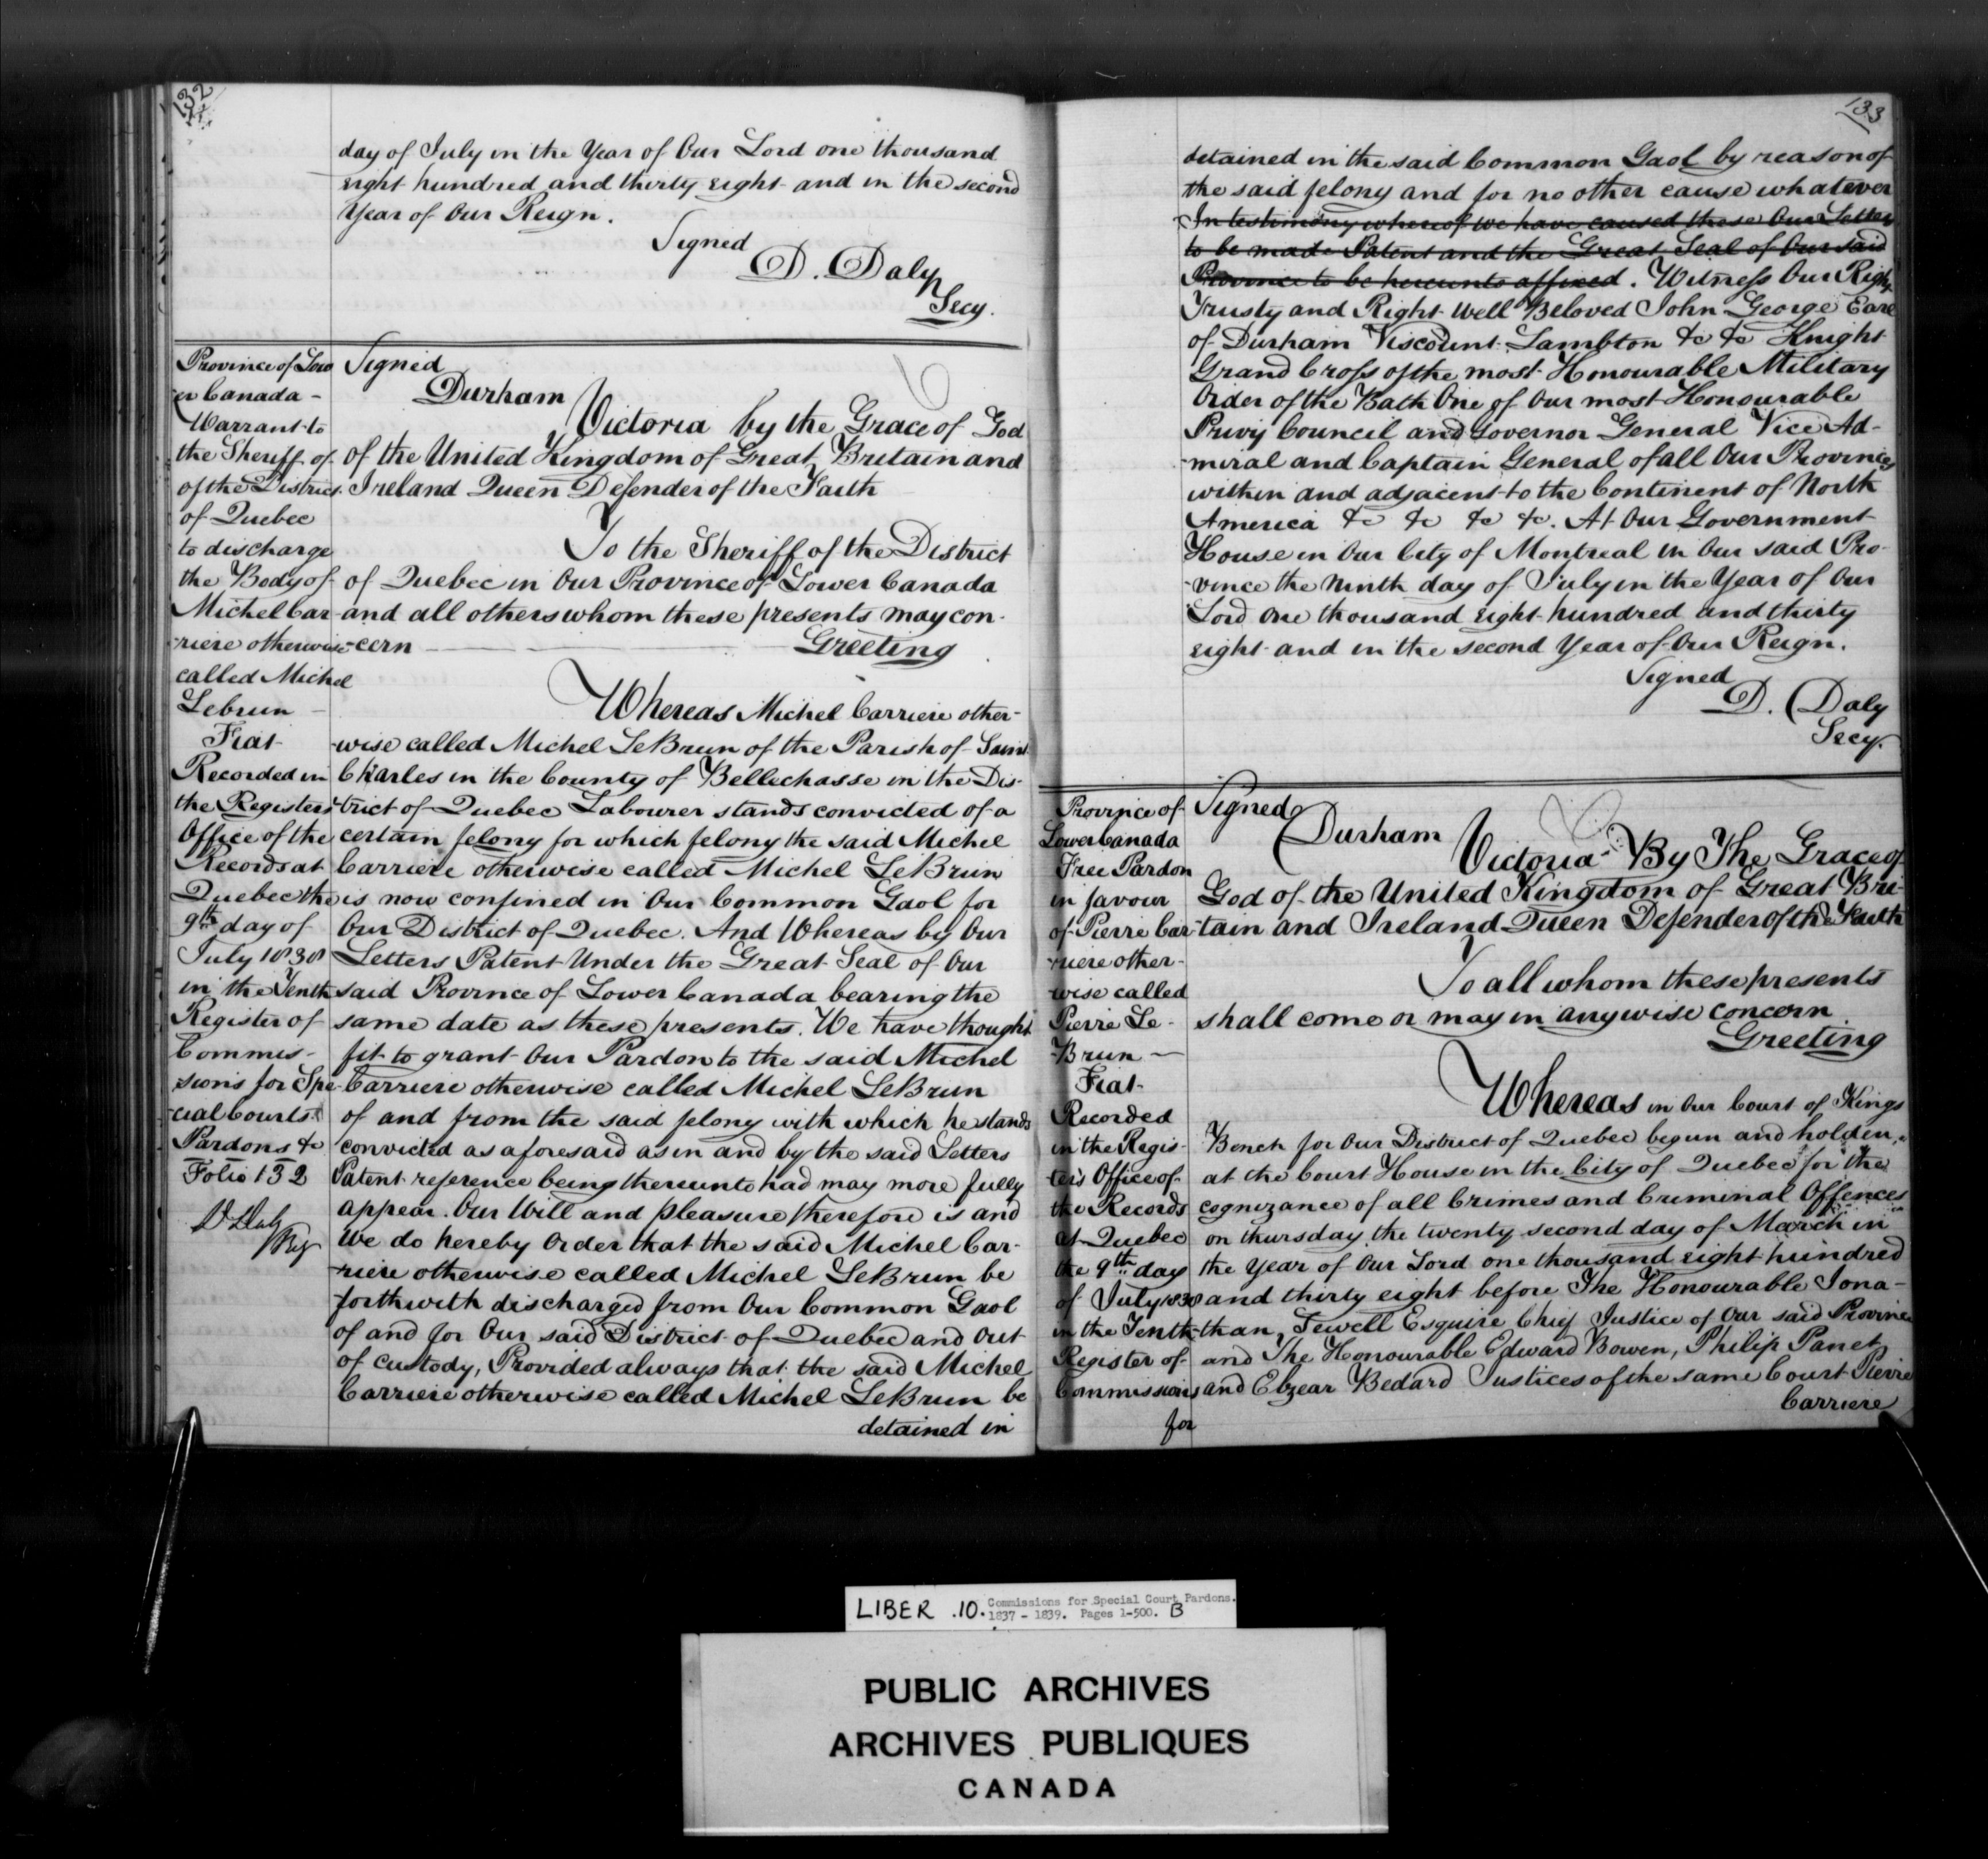 132
day of July in the Year of Our Lord one thousand
eight hundred and thirty eight and in the second
Year of Our Reign.
Signed
D. Daly
Secy.
Province of Low
er Canada -
Warrant to
the Sheriff of
of the District
of Quebec
to discharge
the Body of
Michel Car
-riere otherwise
called Michel
Lebrun -
Fiat
Recorded in
the Registers
Office of the
Records at
Quebec the
9th day of
July 1838
in the Tenth
Register of
Commis-
sions for Spe-
cial Courts
Pardons &c
Folio 132
D Daly
Reg
Signed
Durham
Victoria by the Grace of God
of the United Kingdom of Great Britain and
Ireland Queen Defender of the Faith
To the Sheriff of the District
of Quebec in Our Province of Lower Canada
and all others whom these presents may con-
-cern
Greeting
Whereas Michel Carriere other-
-wise called Michel LeBrun of the Parish of Saint
Charles in the County of Bellechasse in the Dis-
-trict of Quebec Labourer stands convicted of a
certain felony for which felony the said Michel
Carriere otherwise called Michel LeBrun
is now confined in Our Common Gaol for
Our District of Quebec. And Whereas by Our
Letters Patent Under the Great Seal of Our
said Province of Lower Canada bearing the
same date as these presents. We have thought
fit to grant Our Pardon to the said Michel
Carriere otherwise called Michel LeBrun
of and from the said felony with which he stands
convicted as aforesaid as in and by the said Letters
Patent reference being thereunto had may more fully
appear. Our Will and pleasure therefore is and
We do hereby Order that the said Michel Car-
-riere otherwise called Michel LeBrun be
forthwith discharged from Our Common Gaol
of and for Our said District of Quebec and out
of custody, Provided always that the said Michel
Carriere otherwise called Michel LeBrun be
detained in
133
detained in the said Common Gaol by reason of
the said felony and for no other cause whatever
In testimony whereof we have caused these Our Letters
to be made Patent and the Great Seal of Our said
Province to be hereunto affixed. Witness Our Right
Trusty and Right Well Beloved John George Earl
of Durham Viscount Lambton &c &c Knight
Grand Cross of the most Honourable Military
Order of the Bath One of Our most Honourable
Privy Council and Governor General Vice Ad-
-miral and Captain General of all Our Provinces
within and adjacent to the Continent of North
America &c &c &c &c. At Our Government
House in Our City of Montreal in Our said Pro-
-vince the Ninth day of July in the Year of Our
Lord one thousand eight hundred and thirty
eight and in the second Year of Our Reign.
Signed
D. Daly
Secy.
Province of
Lower Canada
Free Pardon
in favour
of Pierre Car
-riere other-
wise called
Pierre Le-
Brun -
Fiat
Recorded
in the Regis-
ter's Office of
the Records
at Quebec
the 9th day
of July 1838
in the Tenth
Register of
Commissions
for
Signed
Durham
Victoria By The Grace of
God of the United Kingdom of Great Bri-
tain and Ireland Queen Defender of the Faith
To all whom these presents
shall come or may in anywise concern
Greeting
Whereas in Our Court of Kings
Bench for Our District of Quebec begun and holden
at the Court House in the City of Quebec for the
cognizance of all Crimes and Criminal Offences
on thursday the twenty second day of March in
the Year of Our Lord one thousand eight hundred
and thirty eight before The Honourable Jona-
than Sewell Esquire Chief Justice of Our said Province
and The Honourable Edward Bowen, Philip Panet
and Elzear Bedard Justices of the same Court Pierre
Carriere
LIBER .10. Commissions for Special Court Pardons.
1837 - 1839. Pages 1-500. B
PUBLIC ARCHIVES
ARCHIVES PUBLIQUES
CANADA